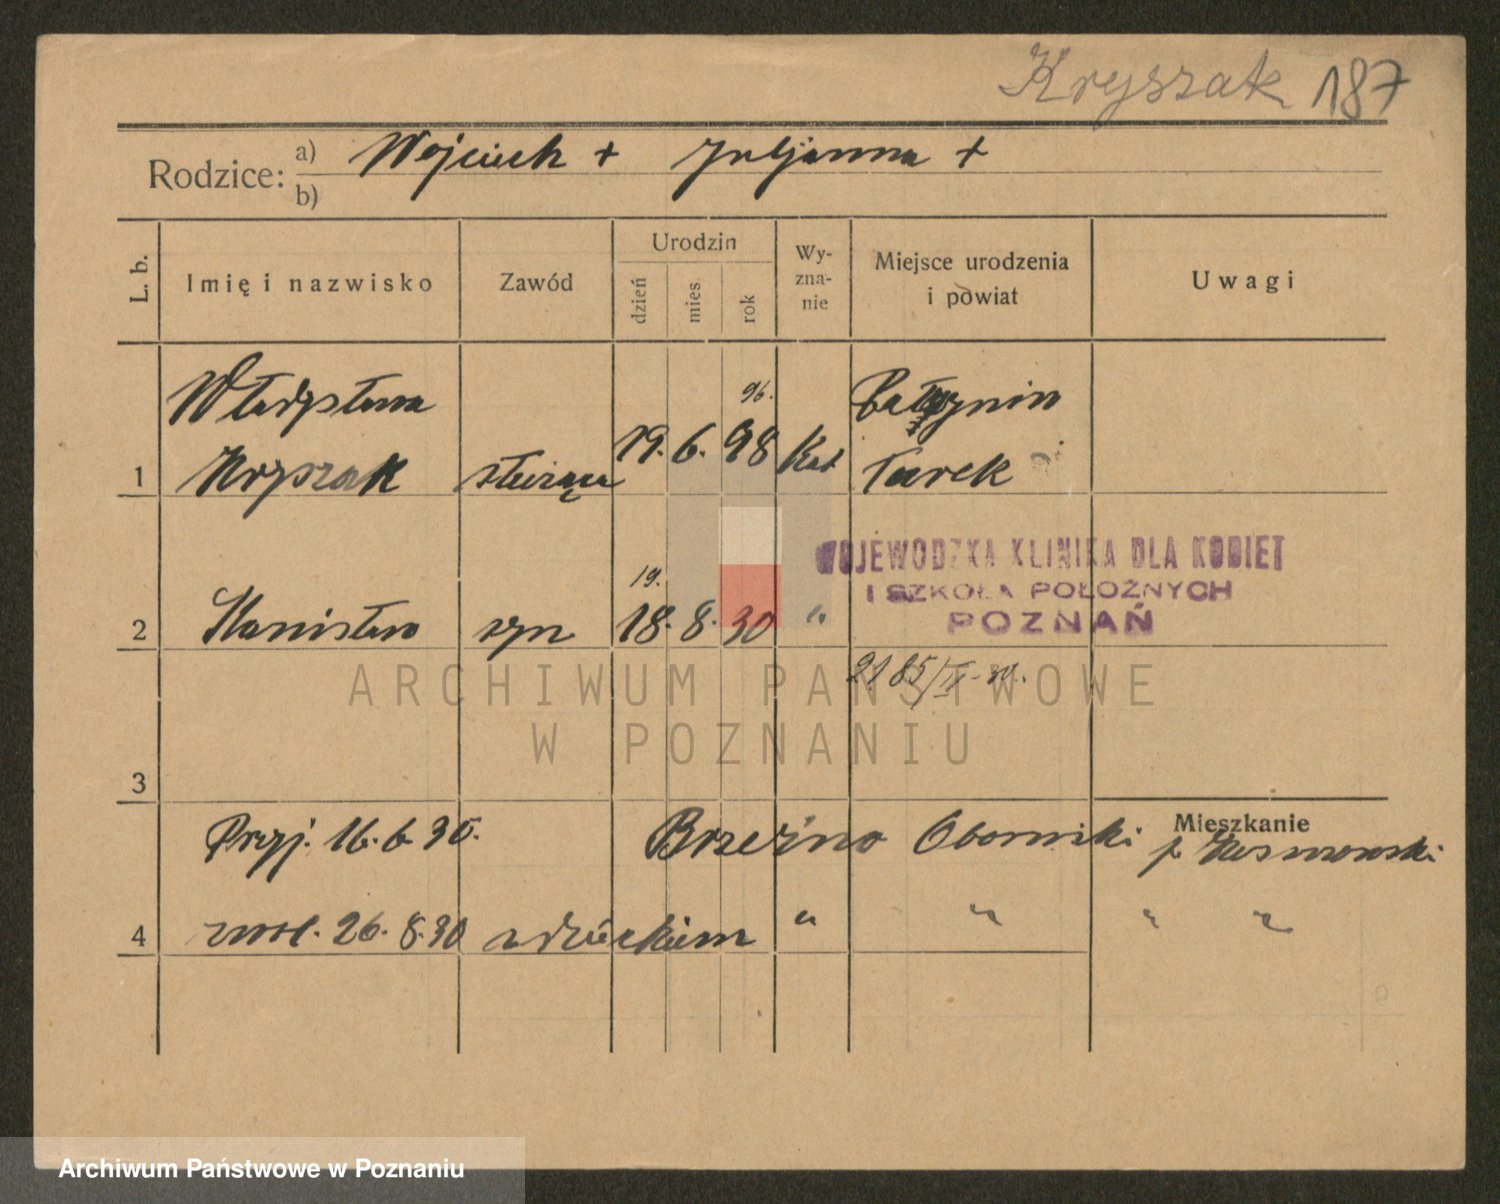 Kryszak 187
Rodzice: a) Wojciech + Juljanna +
b)
L. b.
Imię i nazwisko
Zawód
Urodzin
dzień
mies.
rok
Wy-
zna-
nie
Miejsce urodzenia
i powiat
Uwagi
Władysława
96.
1 Kryszak służąca 19. 6. 98 Kat
Turek
WOJEWÓDZKA KLINIKA DLA KOBIET
I SZKOŁA POŁOŻNYCH
POZNAŃ
19.
2 Stanisław syn 18. 8. 30 "
2185/II
3
Mieszkanie
Przyj. 16. 6 30. Brzeźno Oborniki p.
4 26. 8. 30 z dzieckiem " " " "
ARCHIWUM PAŃSTWOWE
W POZNANIU
Archiwum Państwowe w Poznaniu